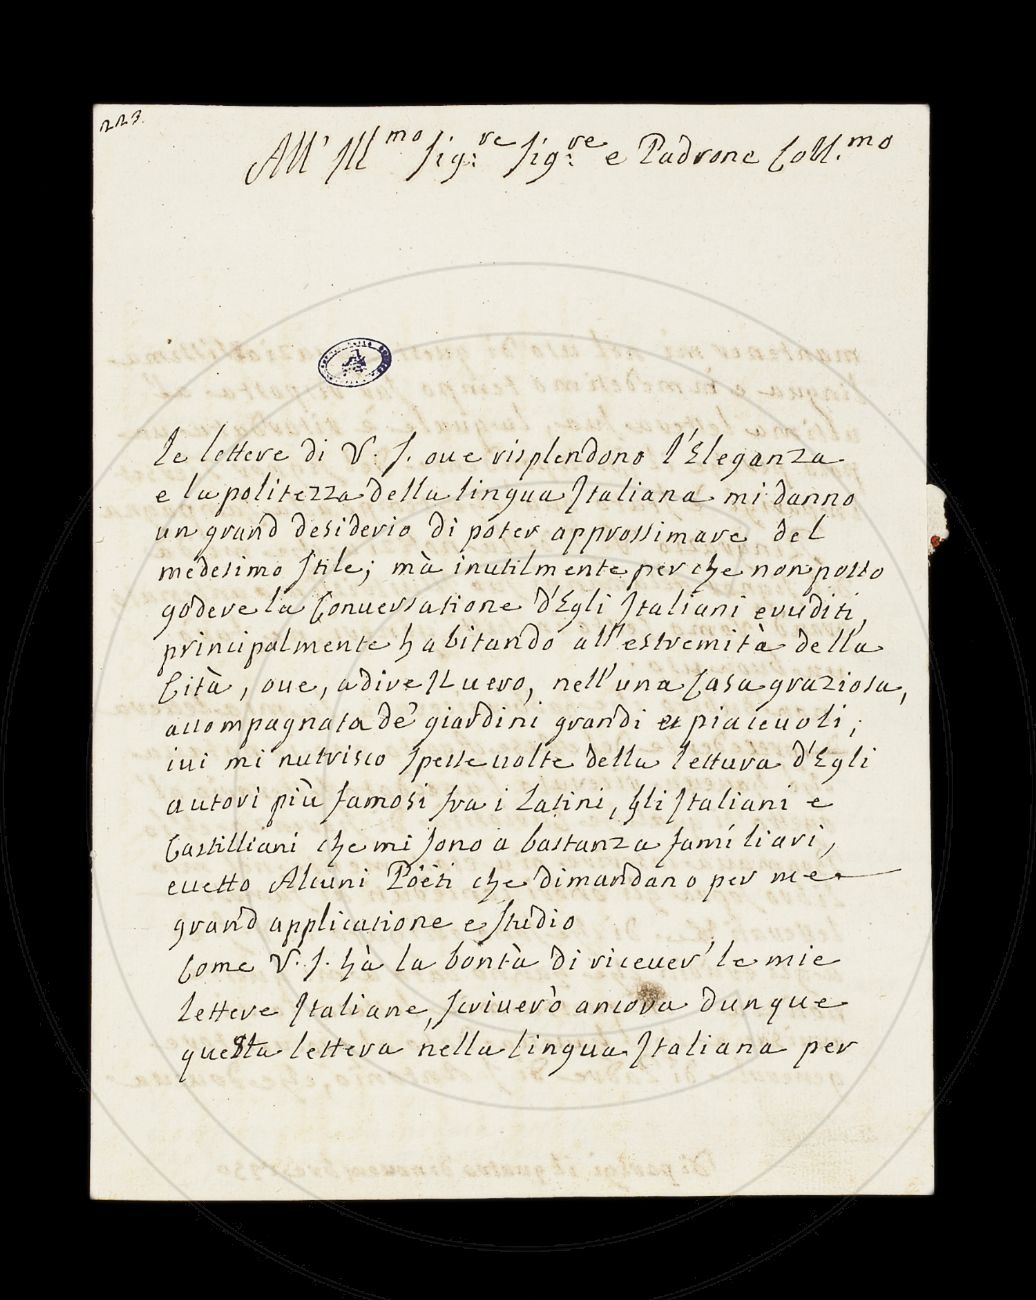 223.
All' Ill.mo Sig:re Sig:re e Padrone Coll.mo
le lettere di V. S. oue risplendono l'Eleganza
e la politezza della lingua Italiana mi danno
un grand desiderio di poter approssimare del
medesimo Stile; mà inutilmente perche non posso
godere la Conuersatione d'Egli Italiani eruditi,
principalmente habitando all'estremità della
Cità, oue, a dire Il uero, nell'una Casa graziosa,
accompagnata de' giardini grandi et piaceuoli;
iui mi nutrisco Spesse uolte della lettura d'Egli
autori più famosi fra i Latini, gli Italiani e
Castilliani che mi sono a bastanza famíliari,
eccetto Alcuni Poëti che dimandano per me
grand applicatione e studio
Come V. S. hà la bontà di riceuer' le mie
lettere Italiane, scriuerò ancora dunque
questa lettera nella lingua Italiana per